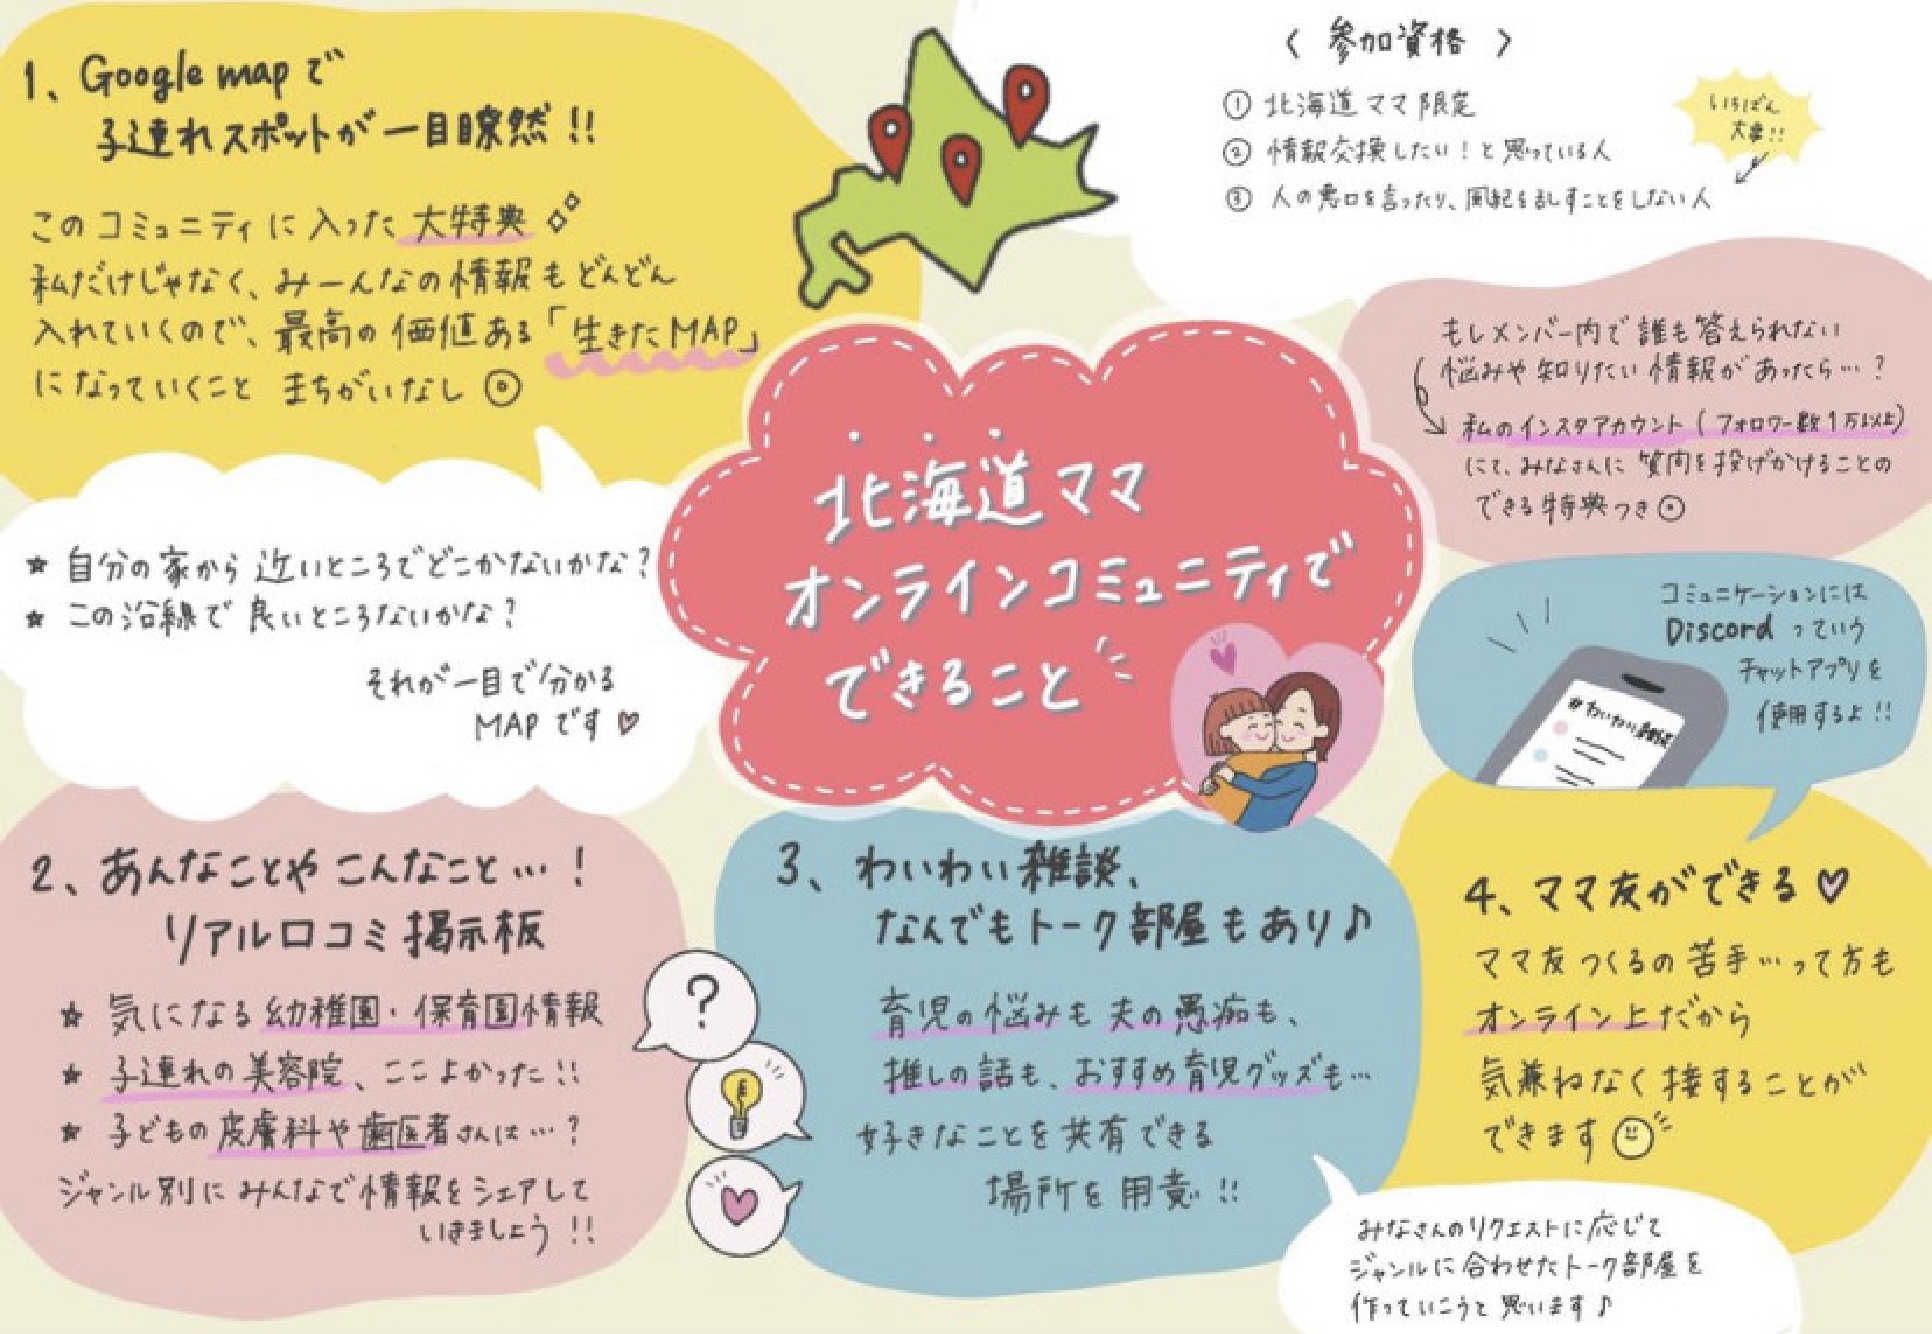 1、Google mapで
子連れスポットが一目瞭然!!
このコミュニティに入った大特典
私だけじゃなく、みーんなの情報もどんどん
入れていくので、最高の価値ある「生きたMAP」
になっていくこと まちがいなし
★ 自分の家から近いところでどこかないかな?
★ この沿線で良いところないかな?
それが一目で分かる
MAPです♡
〈 参加資格 〉
① 北海道ママ限定
② 情報交換したい!と思っている人
③ 人の悪口を言ったり、風紀を乱すことをしない人
いちばん
大事!!
もしメンバー内で誰も答えられない
悩みや知りたい情報があったら…?
私のインスタアカウント(フォロワー数1万以上)
にて、みなさんに質問を投げかけることの
できる特典つき
北海道ママ
オンラインコミュニティで
できること
コミュニケーションには
Discordっていう
チャットアプリを
使用するよ!!
#わいわい雑談
2、あんなことやこんなこと…!
リアル口コミ掲示板
★ 気になる幼稚園・保育園情報
★ 子連れの美容院、ここよかった!!
★ 子どもの皮膚科や歯医者さんは…?
ジャンル別にみんなで情報をシェアして
いきましょう!!
?
3、わいわい雑談、
なんでもトーク部屋もあり♪
育児の悩みも夫の愚痴も、
推しの話も、おすすめ育児グッズも…
好きなことを共有できる
場所を用意!!
4、ママ友ができる♡
ママ友つくるの苦手…って方も
オンライン上だから
気兼ねなく接することが
できます
みなさんのリクエストに応じて
ジャンルに合わせたトーク部屋を
作っていこうと思います♪